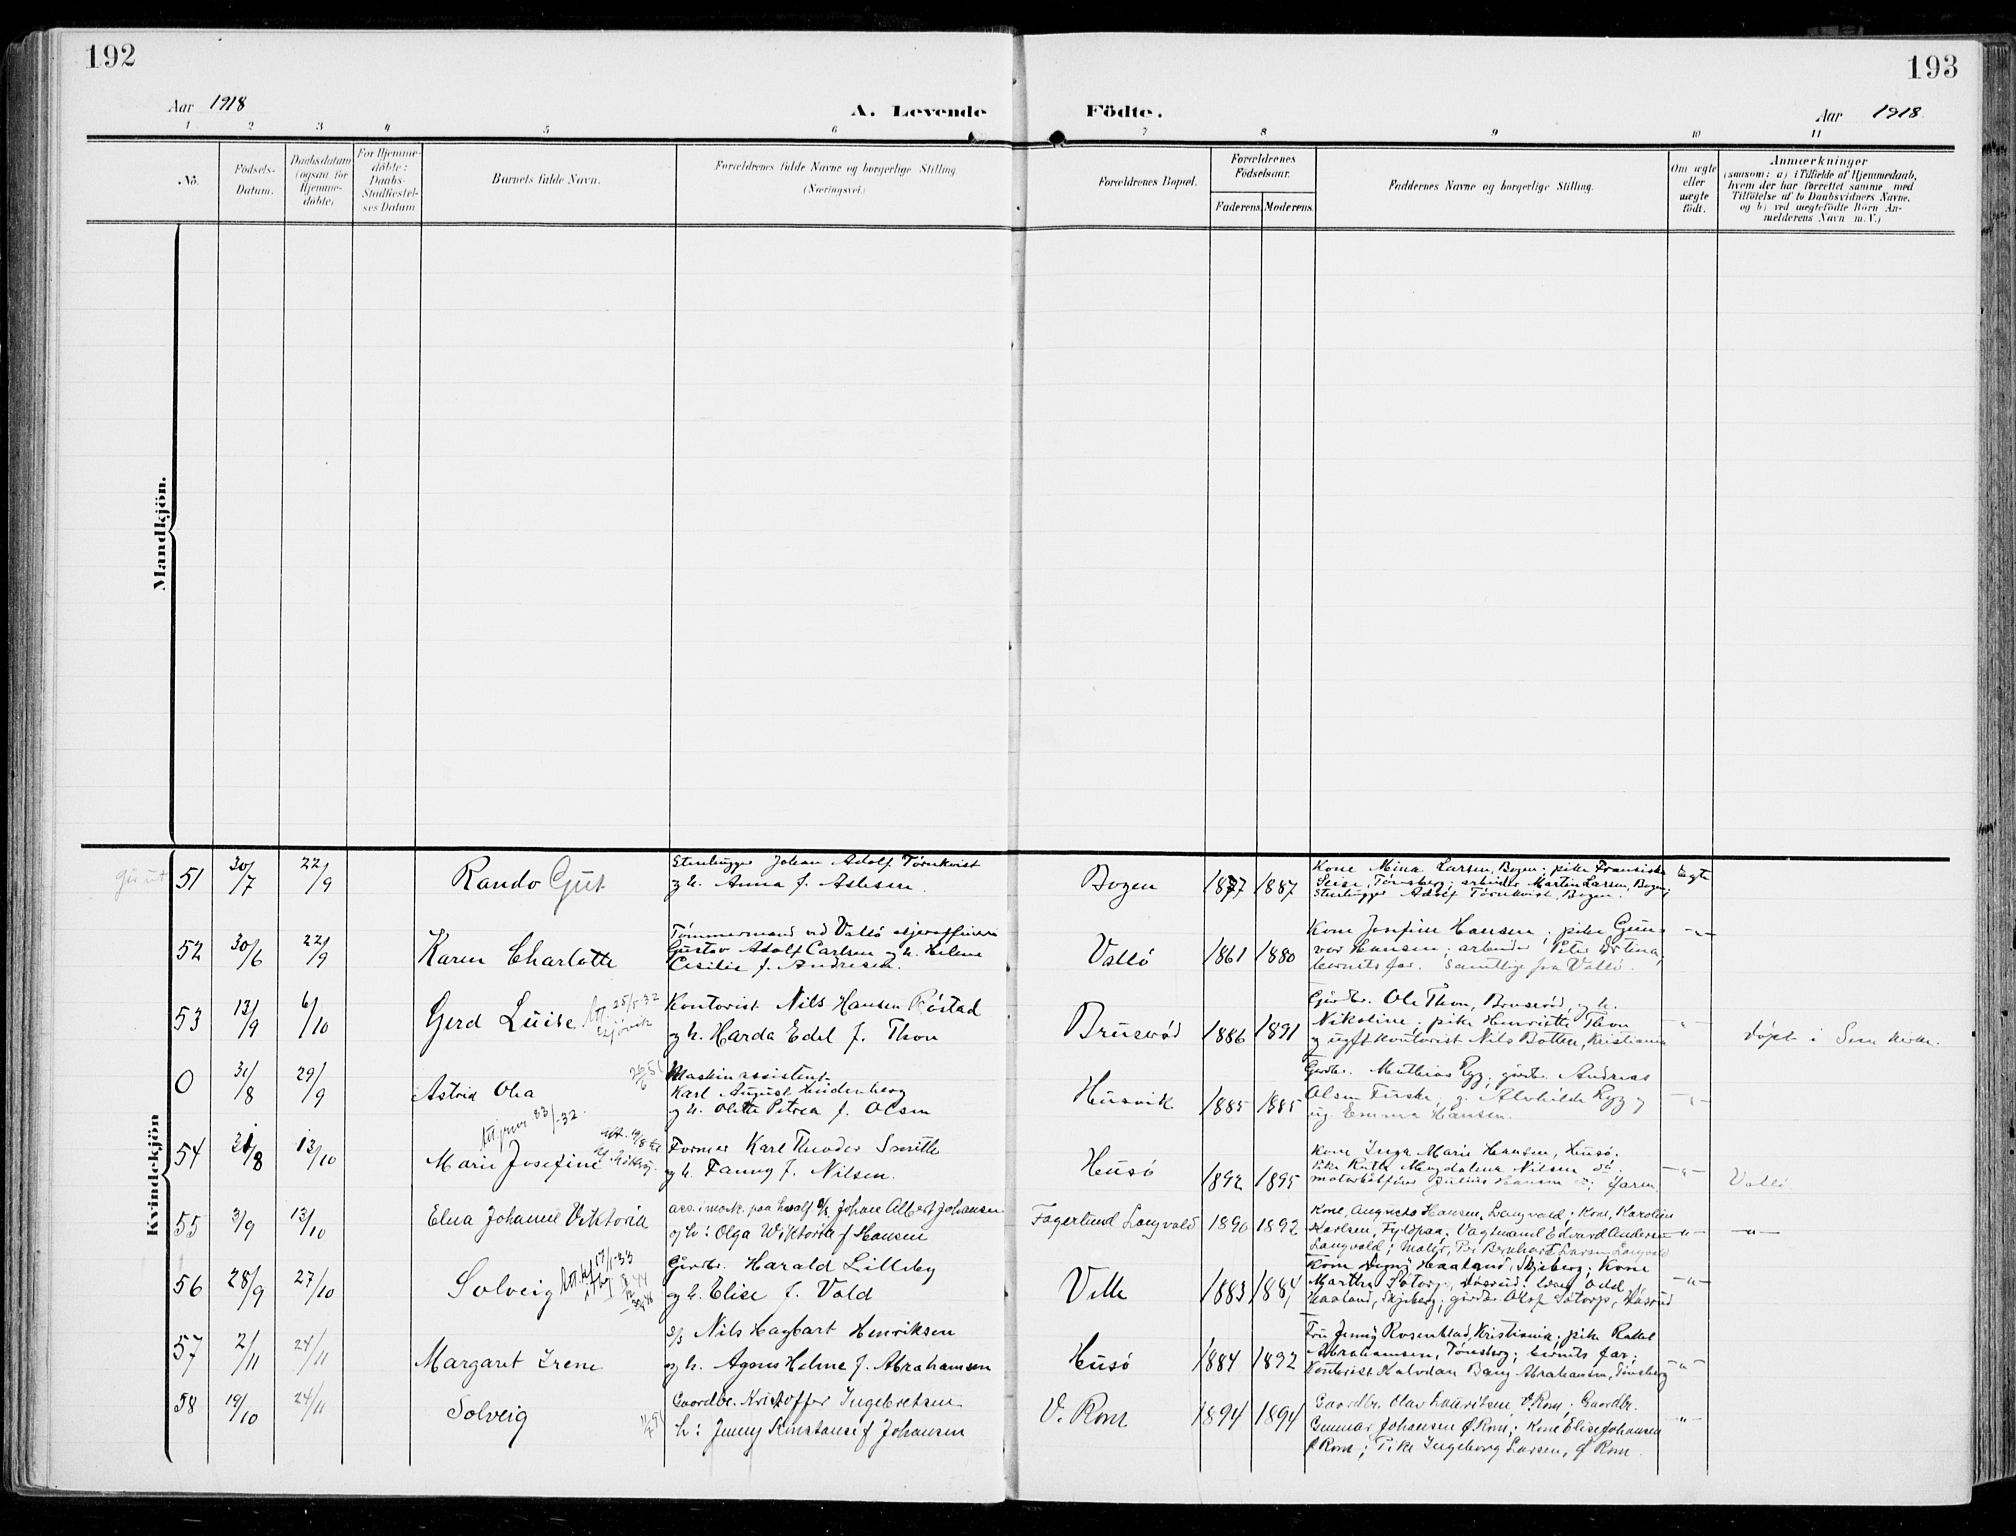 192
193
Aar 1918
A. Levende
Födte.
Aar 1918
1 2 3 4 5 6 7 8 9 10 11
No.
Födsels-
Datum.
Daabsdatum
(ogsaa for
Hjemme-
döbte)
For Hjemme-
döbte:
Daabs-
Stadfæstel-
ses Datum
Barnets fulde Navn.
Forældrenes fulde Navne og borgerlige Stilling
(Næringsvei)
Forældrenes Bopæl.
Forældrenes
Födselsaar.
Faderens. Moderens.
Faddernes Navne og borgerlige Stilling.
Om ægte
eller
uægte
födt.
Anmærkninger
(saasom: a) i Tilfælde af Hjemmedaab,
hvem der har forrettet samme, med
Tilföielse af to Daabsvidners Navne,
og b) ved uægtefödte Börn An-
melderens Navn m. V.)
Mandkjön.
Kvindekjön
51 30/7 22/9 Rando Gut
Stenhugger Johan Adolf Tørnkvist
og h. Anna f. Aslesen.
Bogen 1877 1887
Kone Mina Larsen, Bogen; pike Fransiska
Seise, Tønsberg; arbeider Martin Larsen, Bogen;
Stenhugger Adolf Tørnkvist, Bogen.
Ægte
52 30/6 22/9 Karen Charlotte
Tømmermand ved Vallö oljeraffineri
Gustav Adolf Carlsen og h. Helene
Cesilie f. Andresen.
Vallö 1861 1880
Kone Josefine Hansen; pike Gun-
vor Hansen; arbeider Peter
barnets far. Samtlige fra Vallö.
-"-
53 13/9 6/10 Gerd Luise
Att. 25/5-32
Kontorist Nils Hansen Röstad
og h. Harda Edel f. Thon
Bruserød 1886 1891
Gårdbr. Ole Thon, Bruserød, og h.
Nikoline; pike Henriette Thon
og ugft kontorist Nils Botten, Kristiania
-"-
döpt i Sem kirke.
0 31/8 29/9 Astrid Olea
Maskinassistent
Karl August Lindenberg
og h. Olette Petrea f. Olsen
Husvik 1885 1885
Gårdbr. Mathias Ryg; gårdbr. Andreas
Olsen g. Alvhilde Ryg og
ug. Emma Hansen.
-"-
54 21/8 13/10 Marie Josefine
Former Karl Theodor Smith
og h. Fanny f. Nilsen.
Husö 1892 1895
Kone Inga Marie Hansen, Husö.
Pike Ruth Magdalena Nilsen do.
Julius Hansen do; faren.
-"-
Vallö
55 3/9 13/10 Elna Johanne Viktoria
Johan Albert Johansen
og h: Olga Wiktoria f Hansen
Fagerlund Langvald 1890 1892
Kone, Augusta Hansen, Langvald; Kone, Karoline
Karlsen, Fyldpaa; Vagtmand Edvard Andersen
Langvald; Maler, Per Bernhart Larsen Langvald
-"-
-"-
56 28/9 27/10 Solveig
Gårdbr. Harald Lilleby
og h. Elise f. Vold
Velle 1883 1884
Kone Haaland, Skjeberg; Kone
Martha Satorp, Odd
Haaland, Skjeberg; gårdbr. Olaf Satorp,
-"-
57 2/11 24/11 Margaret Irene
s/f Nils Hagbart Henriksen
og h. Agnes Helene f. Abrahamsen
Husö 1884 1892
Fru Jenny Rosenblad, Kristiania; pike Rakel
Abrahamsen, Tønsberg; barnets far;
Kontorist Halvdan Bang Abrahamsen, Tönsberg
-"-
58 19/10 24/11 Solveig
Gaardbr. Kristoffer Ingebretsen
h: Jenny Konstanse f Johansen
V. Rom 1894 1894
Gaardbr. Olav Lauritsen, Ø. Rom; Gaardbr.
Gunnar Johansen Ø Rom; Kone Elise Johansen
Ø Rom; Pike Ingeborg Larsen, Ø Rom.
-"-